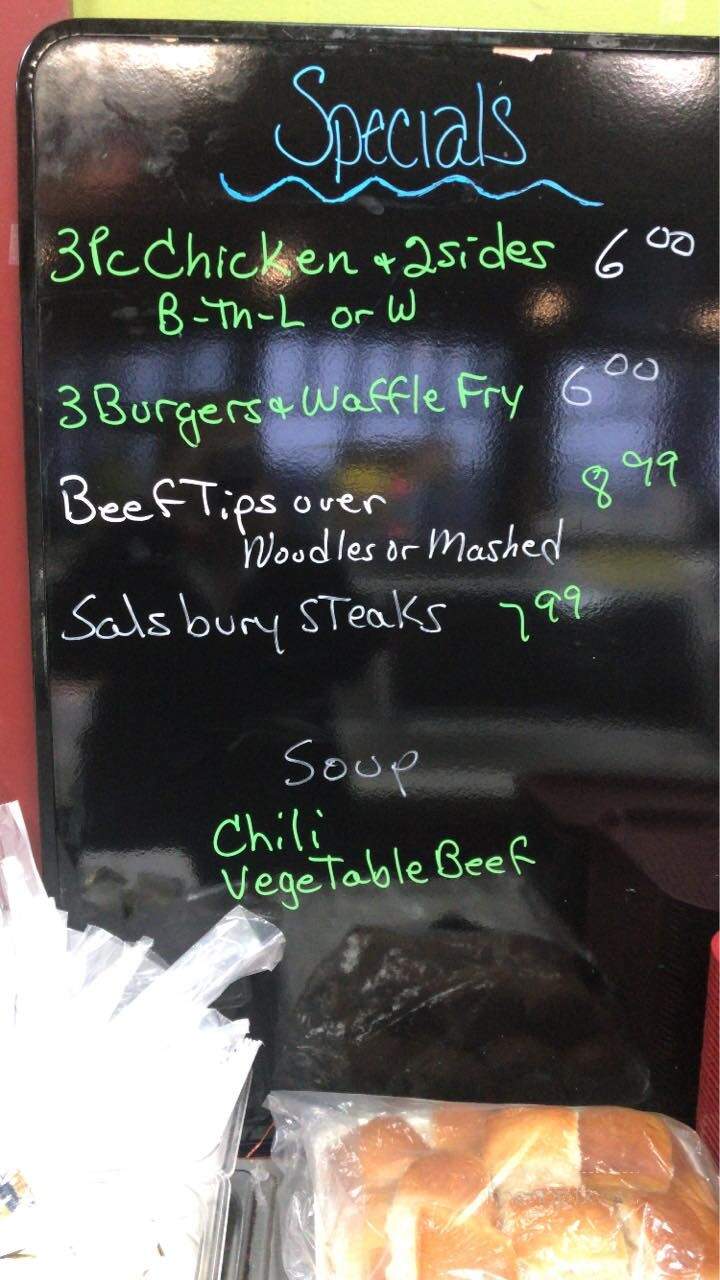 Specials
3Pc Chicken + 2 sides 6 00
B-Th-L or W
3 Burgers + Waffle Fry 6 00
Beef Tips over 8 99
Noodles or Mashed
Salsbury Steaks 7 99
Soup
Chili
Vegetable Beef